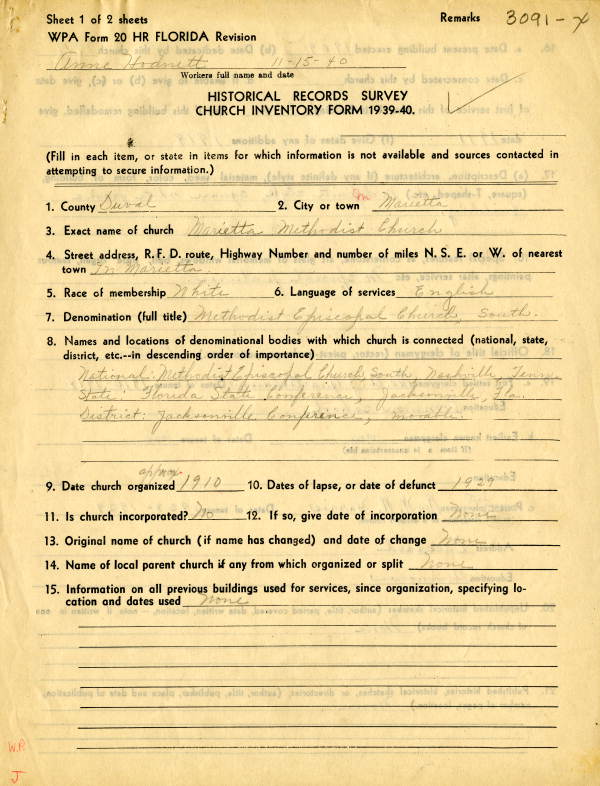 Sheet 1 of 2 sheets Remarks 3091-X
WPA Form 20 HR FLORIDA Revision
Anne Hodnett 11-15-40
Workers full name and date
HISTORICAL RECORDS SURVEY
CHURCH INVENTORY FORM 1939-40.
(Fill in each item, or state in items for which information is not available and sources contacted in
attempting to secure information.)
1. County Duval 2. City or town In Marietta
3. Exact name of church Marietta Methodist Church
4. Street address, R. F. D. route, Highway Number and number of miles N. S. E. or W. of nearest
town In Marietta.
5. Race of membership White 6. Language of services English
7. Denomination (full title) Methodist Episcopal Church, South.
8. Names and locations of denominational bodies with which church is connected (national, state,
district, etc.--in descending order of importance)
National: Methodist Episcopal Church, South, Nashville, Tenn.
State: Florida State Conference, Jacksonville, Fla.
District: Jacksonville Conference, movable.
approx.
9. Date church organized 1910 10. Dates of lapse, or date of defunct 1927
11. Is church incorporated? No 12. If so, give date of incorporation None
13. Original name of church (if name has changed) and date of change None
14. Name of local parent church if any from which organized or split None
15. Information on all previous buildings used for services, since organization, specifying lo-
cation and dates used None
W.P.
J